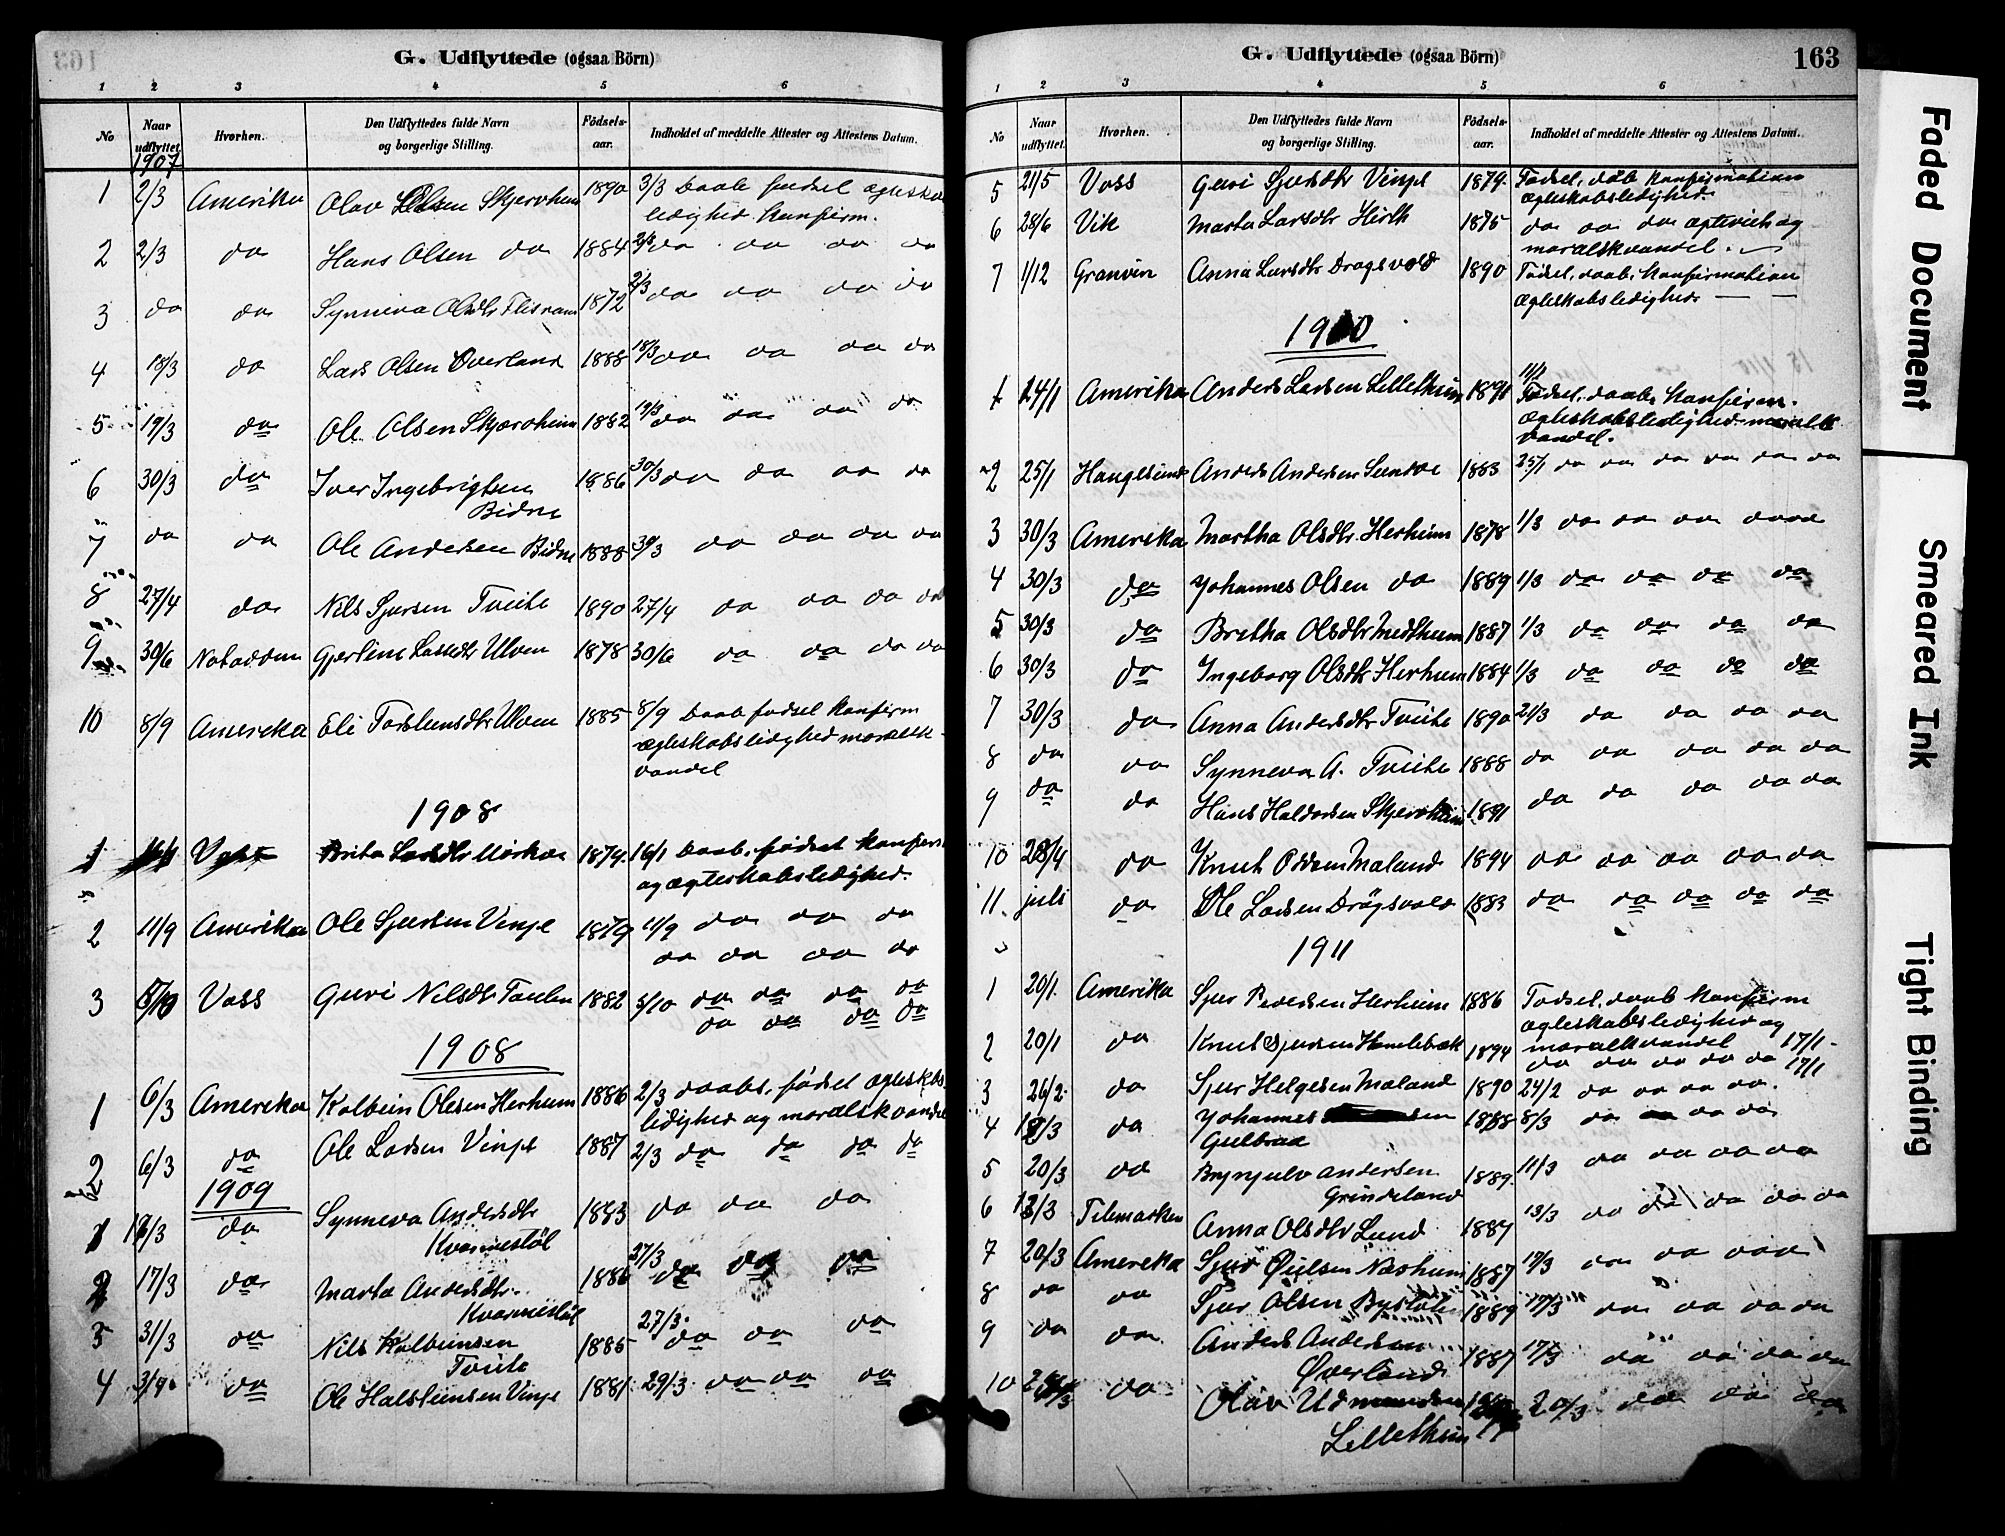 163
G. Udflyttede (ogsaa Börn)
1 2 3 4 5 6
No Naar udflyttet. Hvorhen. Den Udflyttedes fulde Navn og borgerlige Stilling. Födsels-aar. Indholdet af meddelte Attester og Attestens Datum.
1907
1 2/3 Amerika Olav Olsen Skjervheim 1890 3/3 Daab fødsel ægteska
ledighed konfirm.
2 2/3 do Hans Olsen do 1884 2/3 do do do do
3 do do Synneva Olsdtr Flisram 1872 2/3 do do do do
4 18/3 do Lars Olsen Överland 1888 18/3 do do do do
5 19/3 do Ole Olsen Skjervheim 1882 19/3 do do do do
6 30/3 do Iver Ingebrigtsen 1886 30/3 do do do do
Bidne
7 do do Ole Andersen Bidne 1888 30/3 do do do do
8 27/4 do Nils Sjursen Tveite 1890 27/4 do do do do
9 30/6 Notodden Gjertine Larsdtr Ulven 1878 30/6 do do do do
10 8/9 Amerika Eli Torsteinsdtr Ulven 1885 8/9 Daab fødsel konfirm
ægteskabsledighed moralsk
vandel
1908
1 16/1 Brita Larsdtr Mörkve 1879. 16/1 Daab, fødsel konfirm
og ægteskabsledighed.
2 11/9 Amerika Ole Sjursen Vinje 1879 11/9 do do do
do do do do
3 5/10 Voss Guri Nilsdtr 1882 5/10 do do do do
do do do do
1908
1 6/3 Amerika Kolbein Olsen Herheim 1886 2/3 daabs, fødsel ægteskbs
ledighed og moralsk vandel
2 6/3 do Ole Larsen Vinje 1887 2/3 do do do do
1909
1 do Synneva Andersdtr 1883 do do do
Kvarmestöl
2 17/3 do Marta Andersdtr. 1886 27/3 do do do
Kvarmestöl
3 31/3 do Nils Kolbeinsen 1885 27/3. do do do
Tveite
4 do Ole Halsteinsen Vinje 1881. 29/3 do do do
G. Udflyttede (ogsaa Börn) 163
1 2 3 4 5 6
No Naar udflyttet. Hvorhen. Den Udflyttedes fulde Navn og borgerlige Stilling. Födsels-aar. Indholdet af meddelte Attester og Attestens Datum.
5 21/5 Voss Guri Sjursdtr Vinje 1879. Fødsel, daab konfirmation
ægteskabsledighed.
6 28/6 Vik Marta Larsdtr Hirth 1875 do do do og
moralsk vandel.
7 1/12 Granvin Anna Larsdtr Dragsvold 1890 Fødsel, daab, konfirmation
ægteskabsledighed
1910
1 24/1 Amerika Anders Larsen Lillethein 1891 Fødsel, daab, konfirm.
ægteskabsledighed moralsk
vandel.
2 25/1 Haugesund Anders Andersen Sundve 1883 25/1 do do do do do do
3 30/3 Amerika Martha Olsdtr. Herheim 1878 1/3 do do do do do
4 30/3 do Johannes Olsen do 1889 1/3 do do do do
5 30/3 do Britha Olsdtr Medheim 1887 1/3 do do do do
6 30/3 do Ingeborg Olsdtr Herheim 1884 1/3 do do do do
7 30/3 do Anna Andersdtr Tveite 1890 21/3 do do do do
8 do do Synneva A. Tveite 1888 do do do do do
9 do do Hans Haldorsen Skjervheim 1891 do do do do do
10 28/4 do Knut Oddsen Maland 1894 do do do do do
11. juli do Ole Larsen Drögsvold 1883 do do do do do
1911
1 20/1. Amerika Sjur Pedersen Herheim 1886 Fødsel, daab konfirm
ægteskabsledighed og
moralsk vandel 17/1-
2 20/1 do Knut Sjursen Humlebæk 1894 do do do do do 17/1
3 26/2. do Sjur Helgesen Maland 1890 24/2 do do do do.
4 do Johannes 1888 8/3 do do do do
Gulbraa
5 20/3 do Brynjulv Andersen 1889. 11/3 do do do do
Grindeland
6 13/3 Telemarken Anna Olsdtr Lund 1887 13/3 do do do do do
7 20/3 Amerika Sjur Næsheim 1887 17/3 do do do do
8 do do Sjur Olsen 1889 17/3 do do do do
9 do do Anders Andersen 1887 17/3 do do do do
Øverland
10 do Olav Udmundsen 20/3 do do do
Lillethein
Faded Document
Smeared Ink
Tight Binding